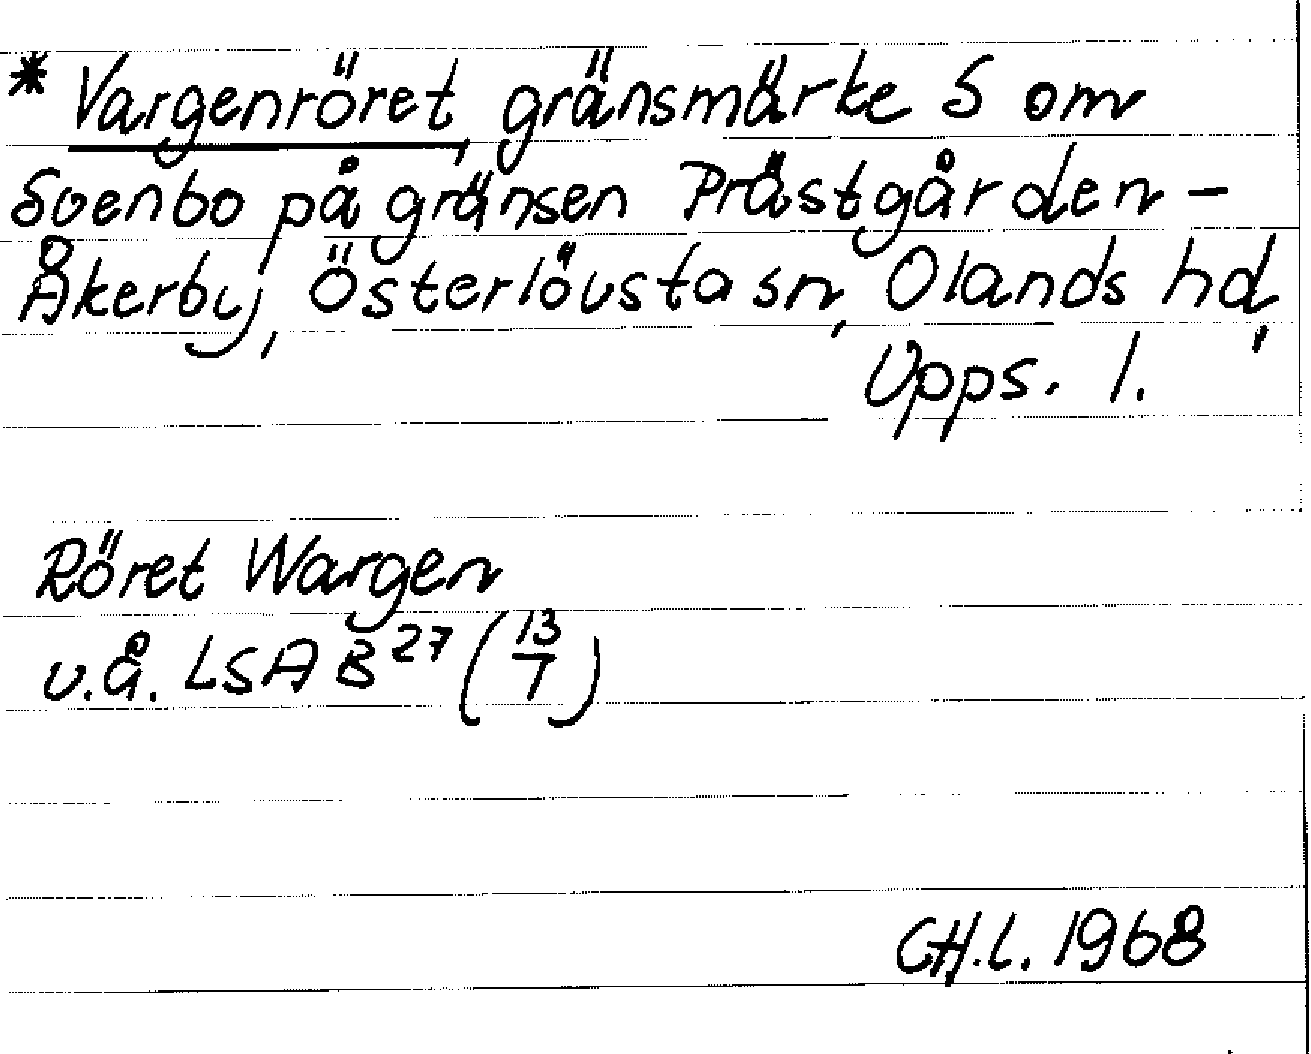 * Vargenröret, gränsmärke S om
Svenbo på gränsen Prästgården -
Åkerby, Österlövsta sn, Olands hd,
Upps. l.
Röret Wargen
u.å. LSA B 27 (13/7)
CH.L. 1968